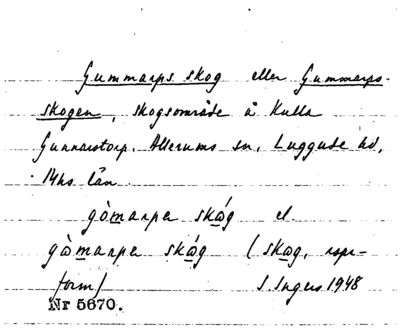 Gummarps skog eller Gummarps-
skogen, skogsområde å Kulla
Gunnarstorp. Allerums sn, Luggude hd,
Mhs län.
gò̀marpa skág el.
gò̀marpa skág (skog, rspr-
form)     S. Ingers 1948
Nr 5670.